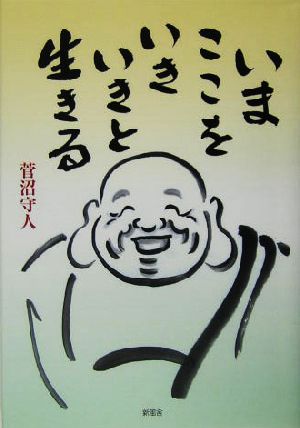 いま
ここを
いき
いきと
生きる
菅沼守人
新風舎